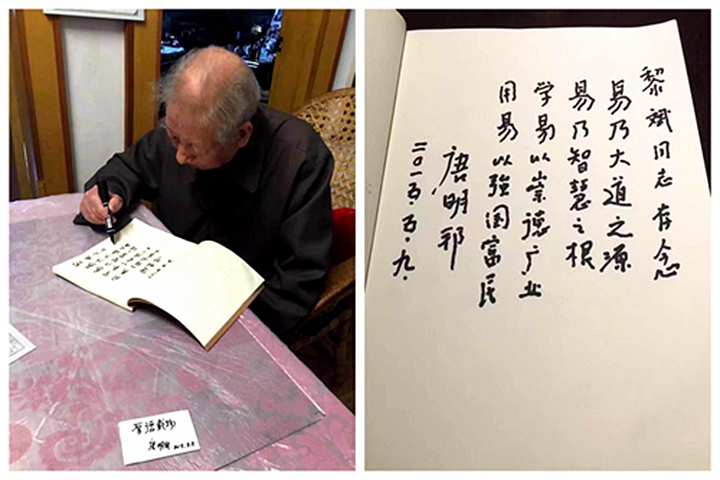 黎斌同志存念
易乃大道之源
易乃智慧之根
学易以崇德广业
用易以強国富民
唐明邦
二〇一五.五.九.
厚德载物